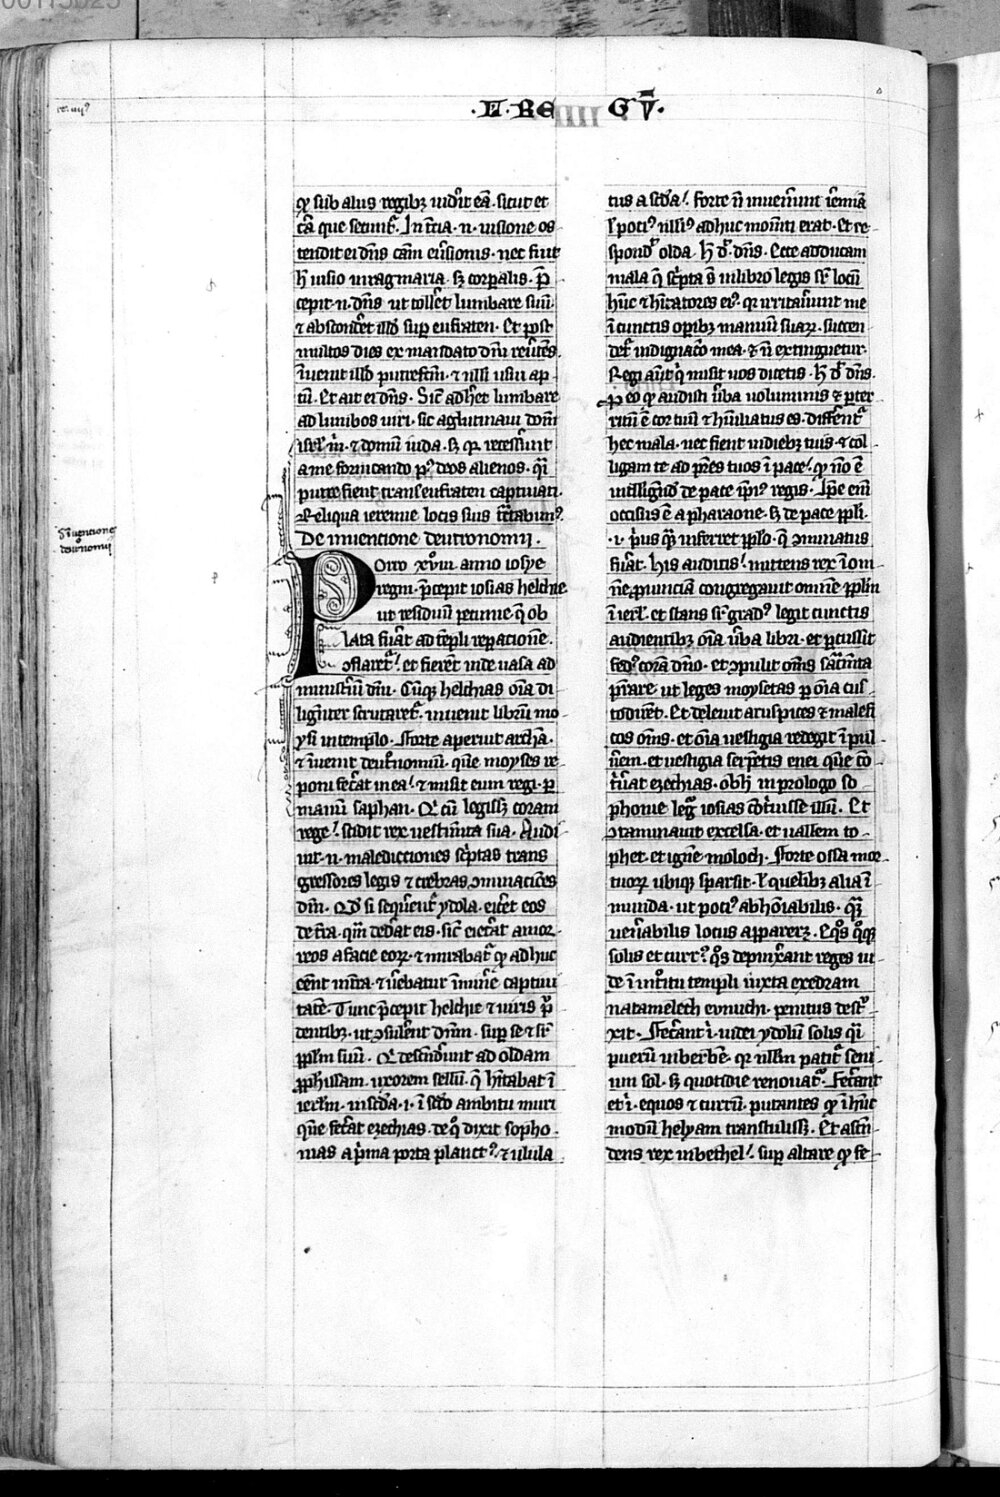 ·II· REG V̅·
q̇ sub aliis regibꝫ uidit eā. sicut et
cā que seruit̄. In t̄cia .n. uisione os
tendit ei dn̄s cām eūsionis. nec fuit
h̄ iusio ymaginaria. sꝫ corꝑalis. p̄
cepit .n. dn̄s ut toll̄et lumbare suū.
⁊ abscond̄et illđ suꝑ eufraten. Et post
multos dies ex mandato dn̄i reūtēs.
īuenit illđ putrefcm̄. ⁊ nlli usui ap
tū. Et ait ei dn̄s. Sic̄ adh̄et lumbare
ad lumbos uiri. sic aglutinaui domū
isrl̄ m̄. ⁊ domū iuda. sꝫ qꝛ recess̄unt
a me fornicando pꝰ deos alienos. qͣi
putrefient trans eufraten captiuati.
Reliqua ieremie locis suis tc̄abimꝰ.
De inuencione deutronomii.
Porro xviii. anno iosye
regni. p̄cepit iosias helchie
ut residuū pecunie. q̄ ob
lata fūat ad tēpli reꝑacionē.
ꝯflaret̄. et fierēt inde uasa ad
minist̄iū dn̄i. Cūqꝫ helchias oīa di
lignt̄er scrutaret̄. inuenit librū mo
ysi in templo. Forte aperuit archā.
⁊ īuenit deut̄nomiū. que moyses re
poni fec̄at in ea. ⁊ misit eum regi. ꝑ
manū saphan. Qͥ cū legissꝫ coram
rege. scidit rex uestim̄ta sua. Audi
uit .n. maledictiones sc̄ptas trans
gressores legis ⁊ crebras ꝯminaciōes
dn̄i. Qđ si sequerēt̄ ydola. eicēt eos
de t̄ra. qm̄ dedāt eis. sic̄ eiec̄at amor
reos a facie eoꝝ. ⁊ mirabat̄ q̇ adhuc
cēnt in t̄ra. ⁊ ūebatur īminē captiui
tatē. Tunc p̄cepit helchie ⁊ uiris pͥ
dentibꝫ. ut ꝯsul̄ent dn̄m. suꝑ se ⁊ sr̄
ppl̄m suū. Qͥ descend̄unt ad oldam
ꝓphissam. uxorem sellū. q̄ hītabat ī
ierl̄m. in sc̄da .i. ī sc̄do ambitu muri
quē fec̄at ezechias. de qͦ dixit sopho
nias a pͥma porta planctꝰ. ⁊ ulula
tus a sc̄da. forte n̄ inuen̄unt iēmiā
l̄ pociꝰ nllīꝰ adhuc momēti erat. Et re
spondͭ olda. h̄ đ. dn̄s. Ecce adducam
mala q̄ sc̄pta s̄ in libro legis sr̄ locū
hūc ⁊ hītatores eiꝰ. qꝛ irritauūnt me
ī cunctis oꝑibꝫ manuū suaꝝ. succen
det̄ indignac̄o mea. ⁊ n̄ extinguetur.
Regi aūt qͥ misit uos dicetis. h̄ đ dn̄s.
ꝓ eo q̇ audisti ūba uoluminis ⁊ ꝑter
ritū ē cor tuū ⁊ hūiliatus es. diffēent̄
hec mala. nec fient in diebꝫ tuis. ⁊ col
ligam te ad pr̄es tuos ī pace. q̇ nō ē
intelligēđ de pace ip̄iꝰ regis. Ip̄e eni
occisus ē a pharaone. sꝫ de pace ppl̄i.
.i. pͥus qͣꝫ inferret ipsō. q̄ ꝯminatus
fūat. his auditis. mittens rex ī om
nē ꝓuinciā congregauit omnē ppl̄m
ī ierl̄. et stans sr̄ gradꝰ legit cunctis
audientibꝫ oīa ūba libri. et ꝑcussit
fedꝰ corā dn̄o. et ꝯpulit om̄s sac̄m̄ta
p̄stare. ut leges moysetas ꝑ oīa cus
todirēt. Et deleuit aruspices ⁊ malefi
cos om̄s. et oīa uestigia redegit ī pul
ūem. et uestigia serpētis enei que cō
t̄uat ezechias. ob h̄ in prologo so
phonie leḡ iosias cōt̄iuisse illū. Et
ꝯtaminauit excelsa. et uallem to
phet. et ignē moloch. Forte ossa mor
tuoꝝ ubiqꝫ sparsit. l̄ quelibꝫ alia ī
munda. ut pociꝰ abhōiabilis. qͣꝫ
uenābilis locus appareꝫ. Eqͦs qͦqꝫ
solis et currꝰ. qͦs depinx̄ant reges iu
de ī int̄oitu templi iuxta exedram
natamelech eunuchi. penitus destͬ
xit. Fec̄ant .i. iudei ydolū solis qͣi
puerū inberbē. qꝛ nllm̄ patit̄ seni
um sol. sꝫ quotidie renouat̄. Fec̄ant
et .i. equos ⁊ currū. putantes q̇ ī hūc
modū helyam transtulissꝫ. Et ascē
dens rex in bethel. suꝑ altare q̇ fe